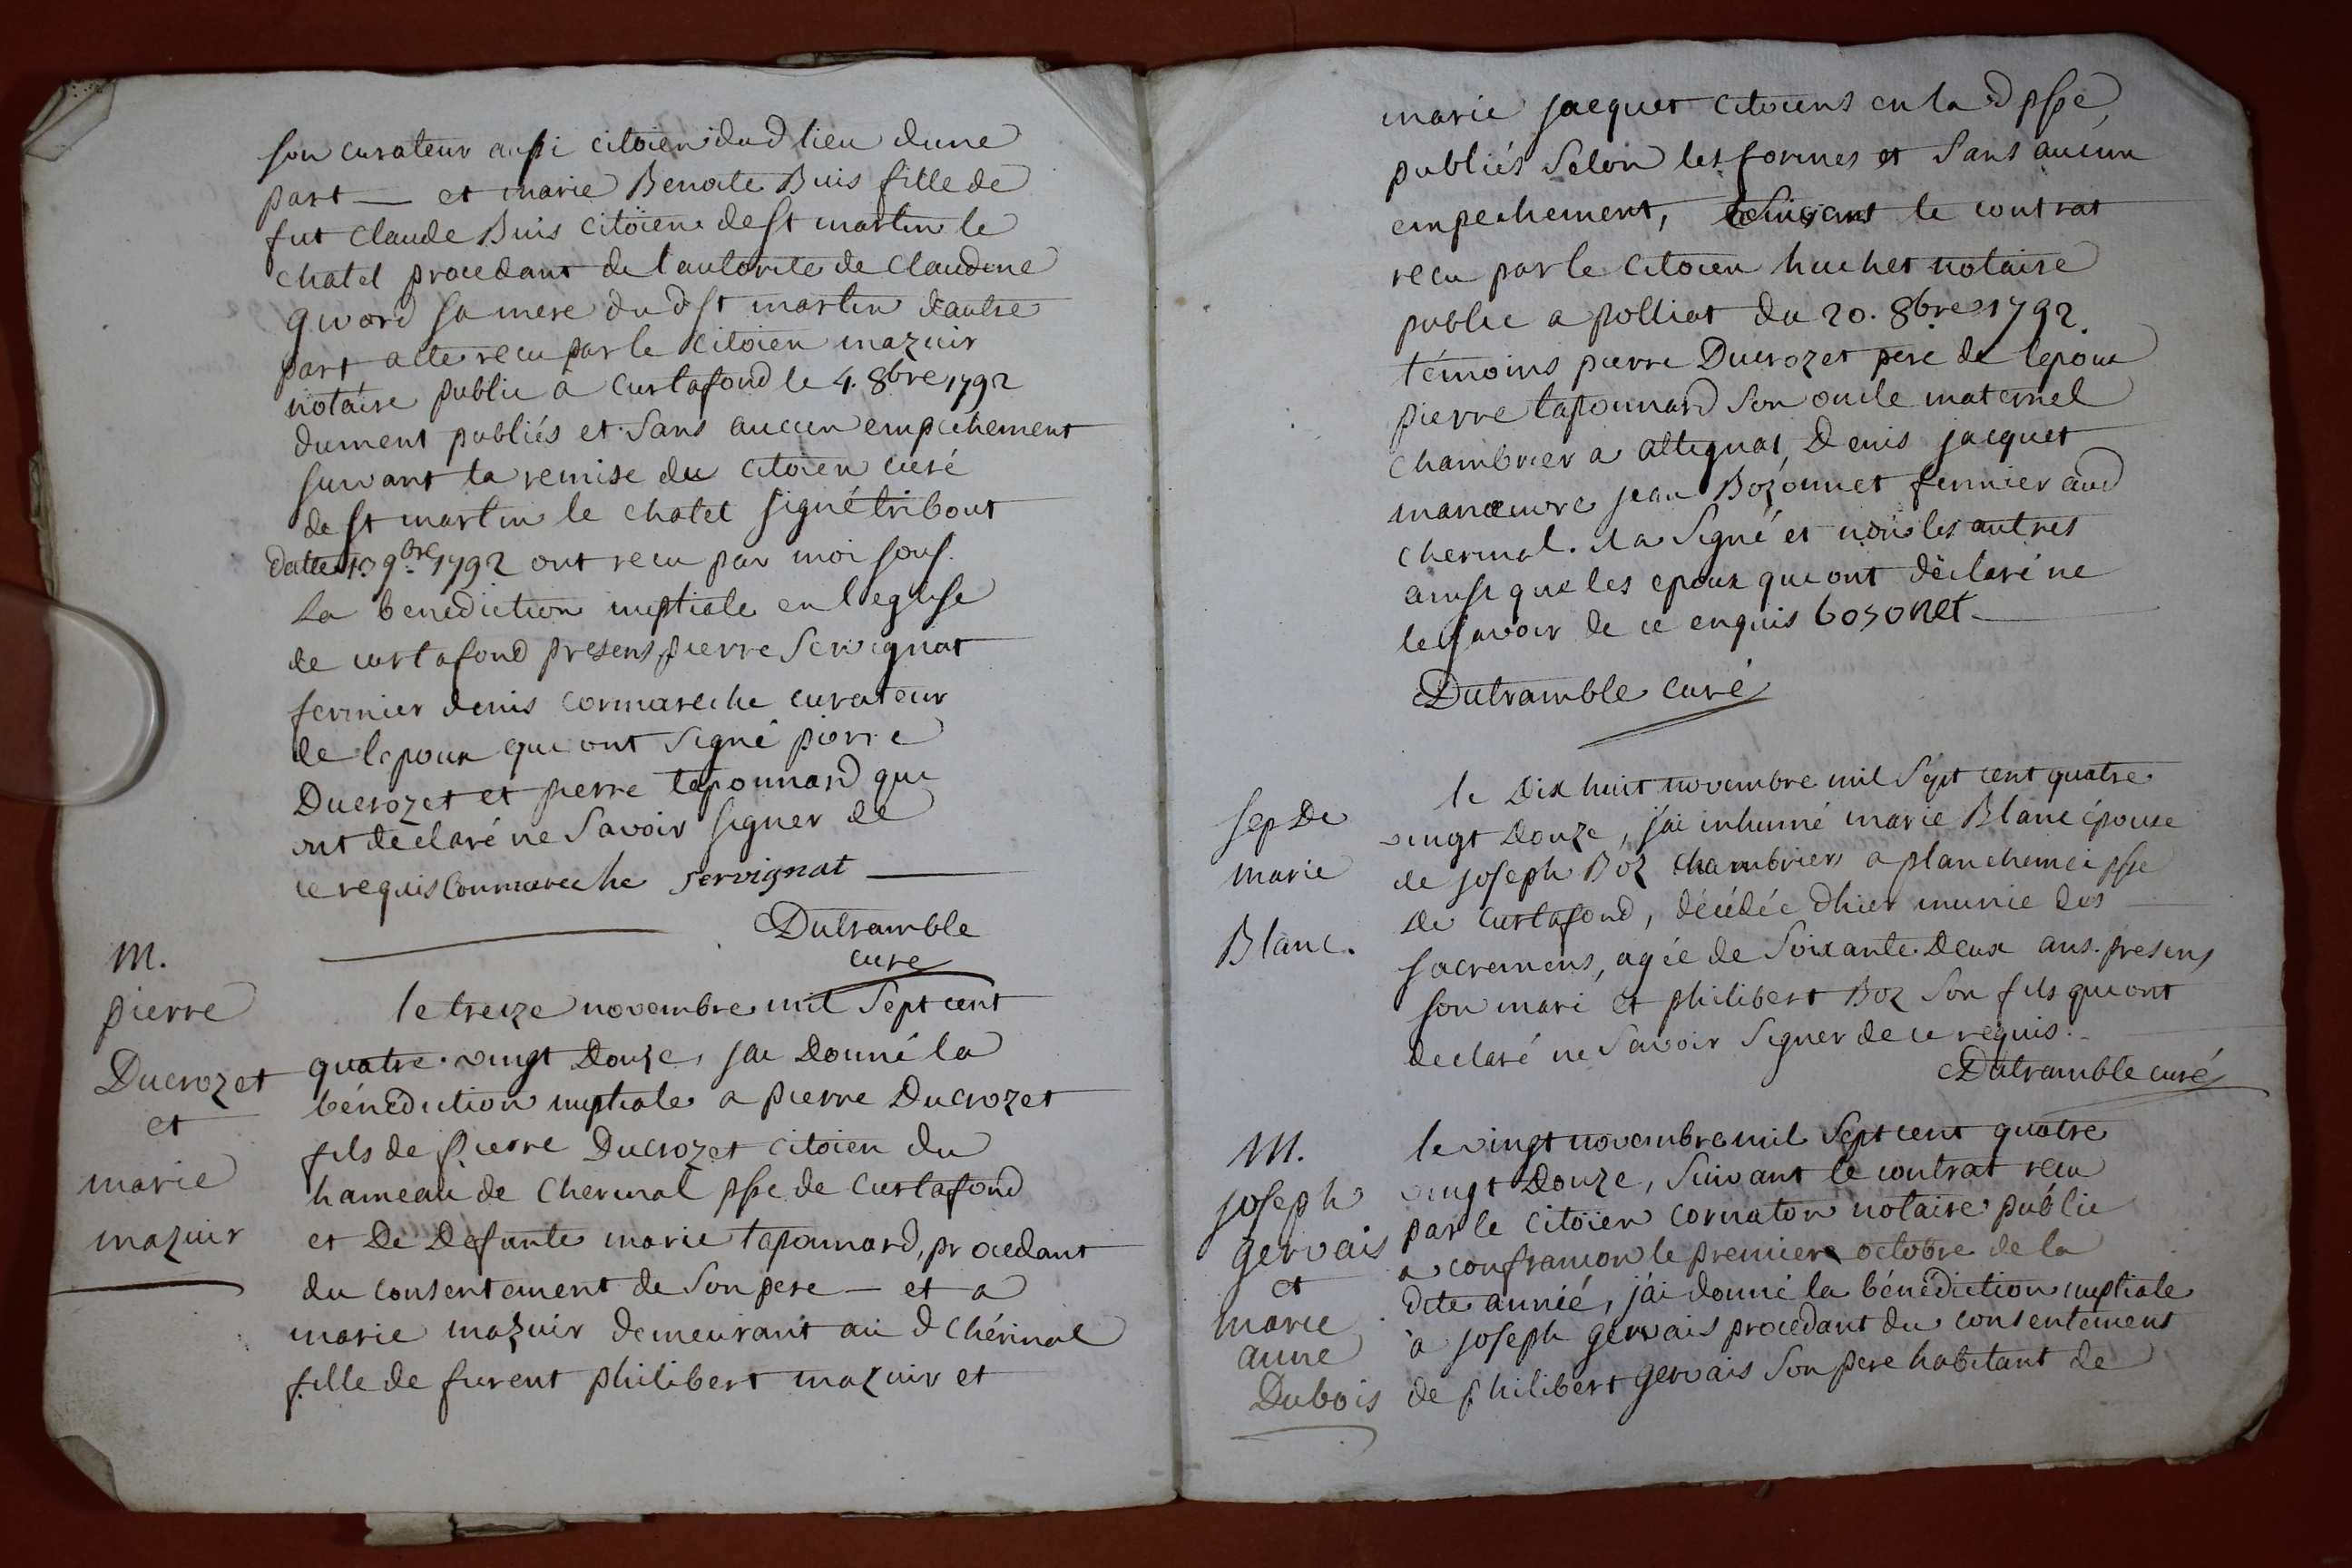 son curateur aussi citoien dud lieu dune
part — et marie Benoite Buis fille de
fut Claude Buis citoien de st martin le
chatel procedant de l'autorité de Claudine
sa mere du d st martin d'autre
part acte recu par le citoien mazuir
notaire public a Curtafond le 4. 8bre 1792
dument publiés et sans aucun empechement
suivant la remise du citoien curé
de st martin le chatel signé tribout
datte 9bre 1792 ont recu par moi sous.
la benediction nuptiale en l'eglise
de curtafond presens pierre Servignat
fermier denis cormareche curateur
de lepoux qui ont signé pierre
Ducrozet et pierre taponnard qui
ont declaré ne savoir signer de
ce requis Cormareche servignat —
Dutramble
curé
M.
pierre
Ducrozet
et
marie
mazuir
le treize novembre mil sept cent
quatre vingt Douze, jai Donné la
bénédiction nuptiale a pierre Ducrozet
fils de pierre Ducrozet citoien du
hameau de Cherinal psse de Curtafond
et De Defunte marie taponnard, procedant
du consentement de son pere — et a
marie mazuir demeurant au d Chérinal
fille de furent philibert mazuir et
marie jacquet citoiens en la d psse,
publiés selon les formes et sans aucun
empechement, suivant le contrat
recu par le citoien huchet notaire
public a polliat du 20. 8bre 1792.
témoins pierre Ducrozet pere de lepoux
pierre taponnard son oncle maternel
Chambrier a attignat, Denis jacquet
manœuvre jean Bozonnet fermier aud
cherinal. il a signé et non les autres
ainsi que les epoux qui ont déclaré ne
le savoir de ce enquis bosonet —
Dutramble curé
sep De
marie
Blanc.
le Dix huit novembre mil sept cent quatre
vingt Douze, j'ai inhumé marie Blanc épouse
de joseph Boz chambrier a planchemei psse
De Curtafond, décédée d'hier munie des
sacremens, agée de soixante Deux ans. presens
son mari et philibert Boz son fils qui ont
declaré ne savoir signer de ce requis.
Dutramble curé
M.
joseph
gervais
et
marie
anne
Dubois
le vingt novembre mil sept cent quatre
vingt Douze, suivant le contrat recu
par le citoien cornaton notaire public
a confrancon le premiere octobre de la
dite année, j'ai donné la bénédiction nuptiale
à joseph gervais procedant du consentement
de philibert gervais son pere habitant de